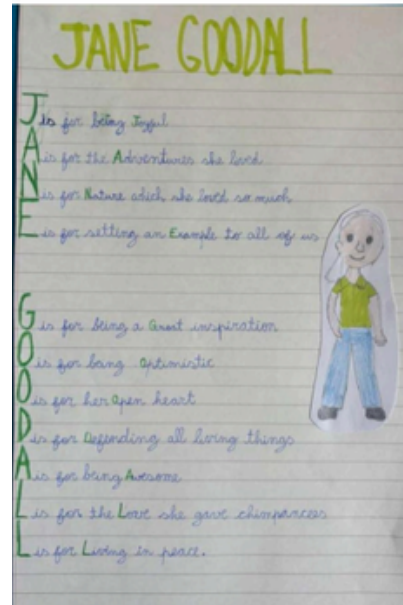 JANE GOODALL
J is for being Joyful
A is for the Adventures she loved
N is for Nature which she loved so much
E is for setting an Example to all of us
G is for being a Great inspiration
O is for being Optimistic
O is for her Open heart
D is for Defending all living things
A is for being Awesome
L is for the Love she gave chimpancees
L is for Living in peace.